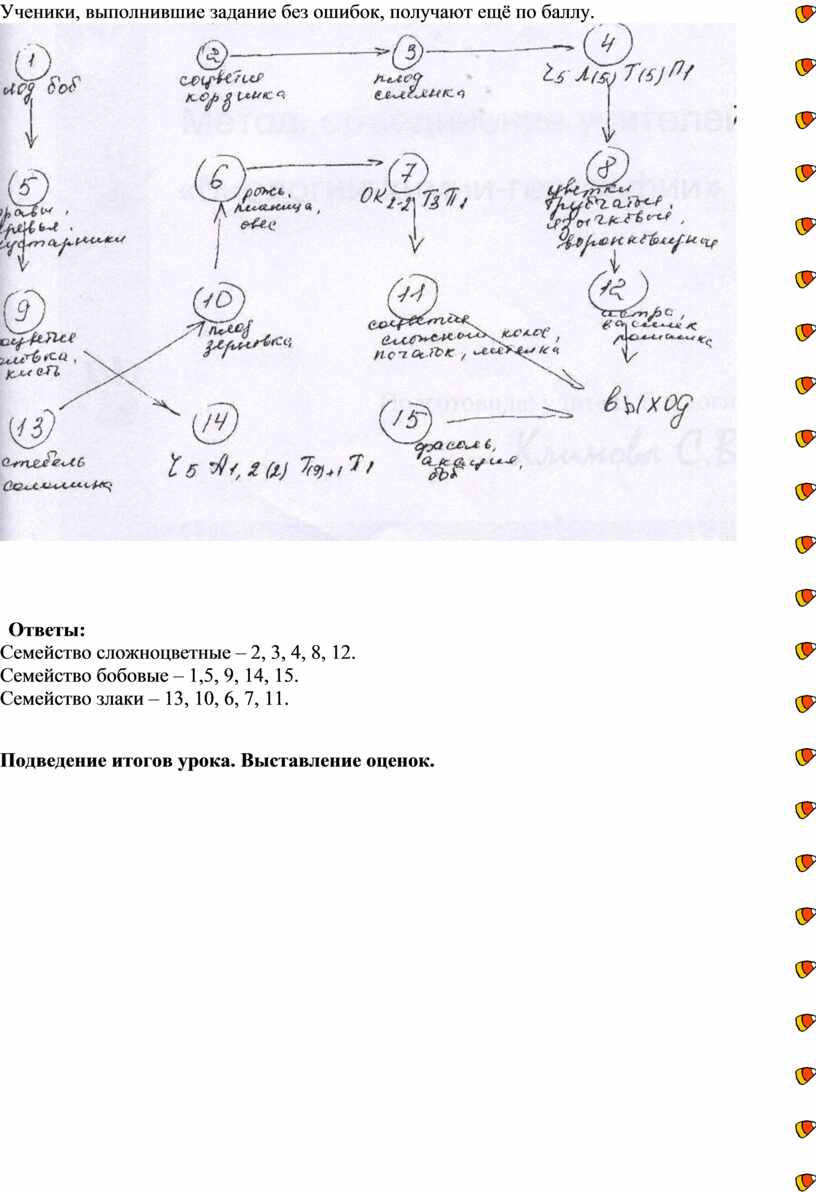 Ученики, выполнившие задание без ошибок, получают ещё по баллу.
1 2 3 4
лод боб
соцветие
корзинка
плод
семянка
Ч5 Л(5) Т(5) П1
5 6 7 8
равы,
ревья.
устарники
рожь,
пшеница,
овес
ОК2-2 Т3 П1
цветки
трубчатые,
язычковые,
воронковидные
9 10 11 12
оцветие
ловка,
кисть
плод
зерновка
соцветия
сложный колос,
початок, метелка
астра,
василек
ромашка
13 14 15 выход
стебель
соломина
Ч5 Л1,2(2) Т(9)+1 П1
фасоль,
акация,
боб
Ответы:
Семейство сложноцветные – 2, 3, 4, 8, 12.
Семейство бобовые – 1,5, 9, 14, 15.
Семейство злаки – 13, 10, 6, 7, 11.
Подведение итогов урока. Выставление оценок.